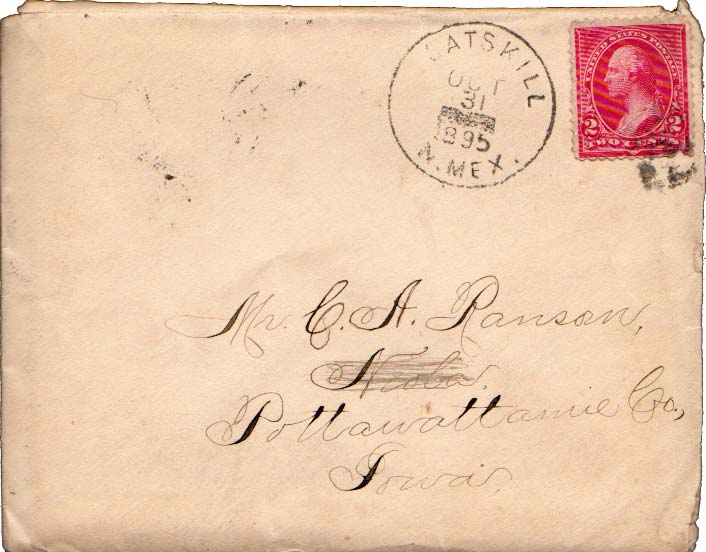 CATSKILL
OCT
31
1895
N. MEX.
UNITED STATES POSTAGE
2 2
TWO CENTS
Mr. C. A. Ranson,
Neola.
Pottawattamie Co.,
Iowa.